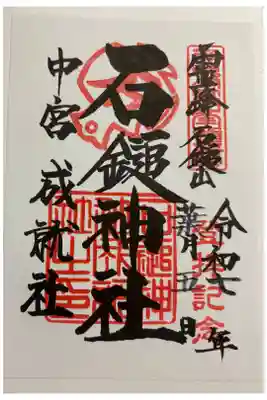 霊峰石鎚山
令和七年
葉月五日
登拝記念
石鎚神社
中宮 成就社